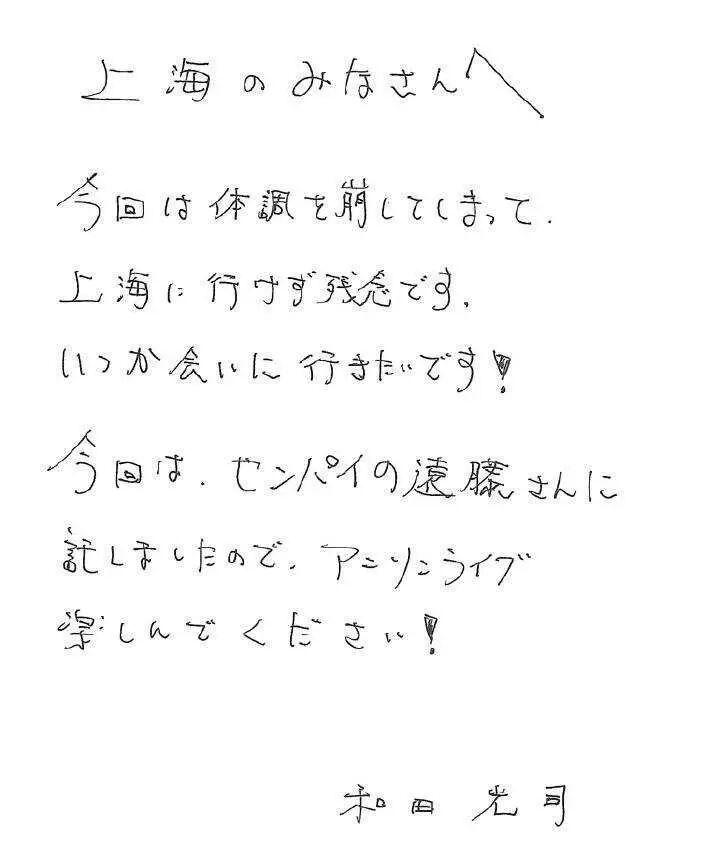 上海のみなさんへ
今回は体調を崩してしまって、
上海に行けず残念です。
いつか会いに行きたいです!
今回は、センパイの遠藤さんに
託しましたので、アニソンライブ
楽しんでください!
和田光司